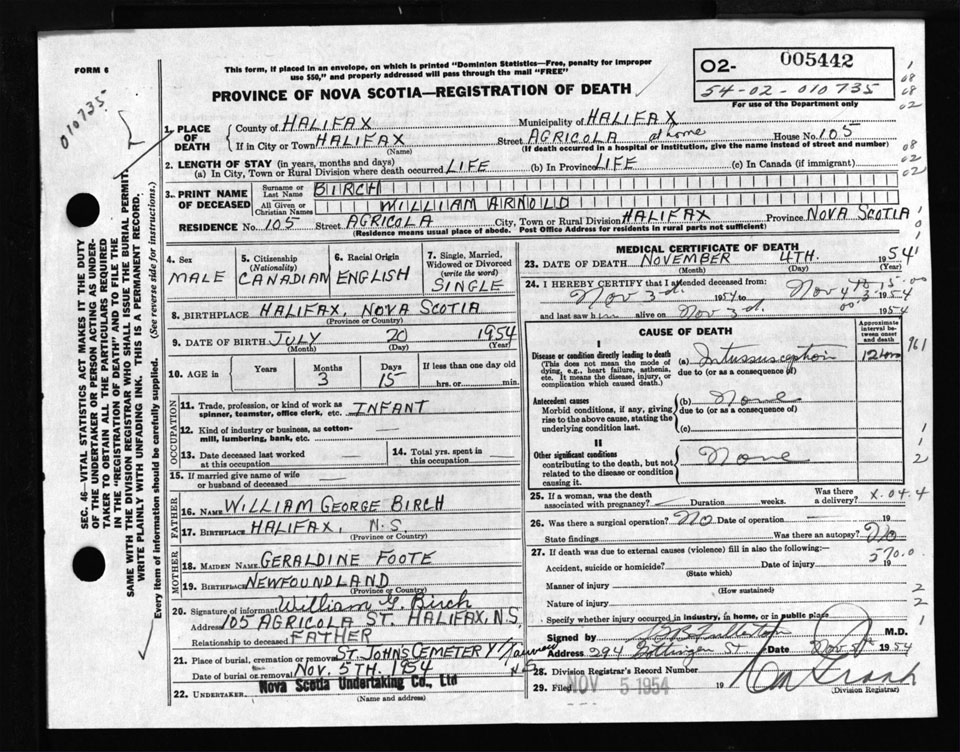 FORM 6
This form, if placed in an envelope, on which is printed "Dominion Statistics—Free, penalty for improper
use $50," and properly addressed will pass through the mail "FREE"
PROVINCE OF NOVA SCOTIA—REGISTRATION OF DEATH
O2- 005442
54-02-010735
For use of the Department only
010735
1. PLACE OF DEATH
County of HALIFAX Municipality of HALIFAX
If in City or Town HALIFAX Street AGRICOLA at home House No. 105
(Name) (If death occurred in a hospital or institution, give the name instead of street and number)
2. LENGTH OF STAY (in years, months and days)
(a) In City, Town or Rural Division where death occurred LIFE (b) In Province LIFE (c) In Canada (if immigrant)
3. PRINT NAME OF DECEASED
Surname or Last Name BIRCH
All Given or Christian Names WILLIAM ARNOLD
RESIDENCE No. 105 Street AGRICOLA City, Town or Rural Division HALIFAX Province NOVA SCOTIA
(Residence means usual place of abode. Post Office Address for residents in rural parts not sufficient)
4. Sex
MALE
5. Citizenship (Nationality)
CANADIAN
6. Racial Origin
ENGLISH
7. Single, Married, Widowed or Divorced (write the word)
SINGLE
8. BIRTHPLACE HALIFAX, NOVA SCOTIA
(Province or Country)
9. DATE OF BIRTH JULY 20 1954
(Month) (Day) (Year)
10. AGE in Years Months 3 Days 15 If less than one day
hrs. or min.
OCCUPATION
11. Trade, profession or kind of work as
spinner, teamster, office clerk, etc. INFANT
12. Kind of industry or business, as cotton-
mill, lumbering, bank, etc.
13. Date deceased last worked
at this occupation
14. Total yrs. spent in
this occupation
15. If married give name of wife
or husband of deceased
FATHER
16. NAME WILLIAM GEORGE BIRCH
17. BIRTHPLACE HALIFAX, N.S.
(Province or Country)
MOTHER
18. MAIDEN NAME GERALDINE FOOTE
19. BIRTHPLACE NEWFOUNDLAND
(Province or Country)
20. Signature of informant William G. Birch
Address 105 AGRICOLA ST. HALIFAX, N.S.
Relationship to deceased FATHER
21. Place of burial, cremation or removal ST. JOHNS CEMETERY
Date of burial or removal NOV. 5TH. 1954 N.S.
22. UNDERTAKER Nova Scotia Undertaking Co., Ltd
(Name and address)
MEDICAL CERTIFICATE OF DEATH
23. DATE OF DEATH NOVEMBER 4TH. 1954
(Month) (Day) (Year)
24. I HEREBY CERTIFY that I attended deceased from:
Nov 3d. 1954 to Nov 4th 1954
and last saw him alive on Nov 3d. 1954
CAUSE OF DEATH
Approximate interval between onset and death
I
Disease or condition directly leading to death (a) Intussusception 12 hrs
(This does not mean the mode of dying, e.g., heart failure, asthenia, etc. It means the disease, injury, or complication which caused death.)
due to (or as a consequence of)
Antecedent causes (b) None
Morbid conditions, if any, giving rise to the above cause, stating the underlying condition last.
due to (or as a consequence of)
(c)
II
Other significant conditions None
contributing to the death, but not related to the disease or condition causing it.
25. If a woman, was the death
associated with pregnancy? Duration weeks. Was there a delivery? X.04.4
26. Was there a surgical operation? No Date of operation 19
State findings Was there an autopsy? No
27. If death was due to external causes (violence) fill in also the following:— 570.0
Accident, suicide or homicide? Date of injury 19
(State which)
Manner of injury
(How sustained)
Nature of injury
Specify whether injury occurred in industry, in home, or in public place
Signed by M.D.
Address 294 Gottingen St Date Nov 1954
28. Division Registrar's Record Number
29. Filed NOV 5 1954 19
(Division Registrar)
SEC. 46—VITAL STATISTICS ACT MAKES IT THE DUTY
OF THE UNDERTAKER OR PERSON ACTING AS UNDER-
TAKER TO OBTAIN ALL THE PARTICULARS REQUIRED
IN THE "REGISTRATION OF DEATH" AND TO FILE THE
SAME WITH THE DIVISION REGISTRAR WHO SHALL ISSUE THE BURIAL PERMIT.
WRITE PLAINLY WITH UNFADING INK. THIS IS A PERMANENT RECORD.
Every item of information should be carefully supplied. (See reverse side for instructions.)